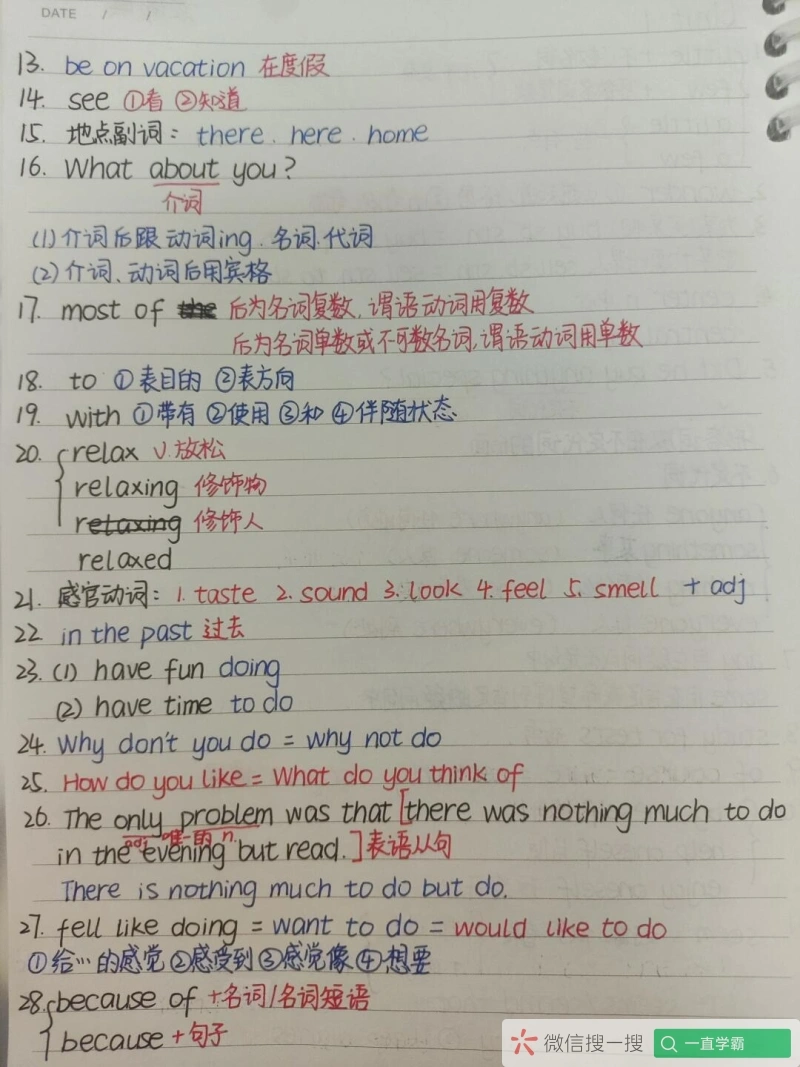 DATE / /
13. be on vacation 在度假
14. see ①看 ②知道
15. 地点副词: there . here . home
16. What about you?
介词
(1) 介词后跟动词ing. 名词. 代词
(2) 介词、动词后用宾格
17. most of the 后为名词复数, 谓语动词用复数
后为名词单数或不可数名词, 谓语动词用单数
18. to ①表目的 ②表方向
19. with ①带有 ②使用 ③和 ④伴随状态
20. relax v. 放松
relaxing 修饰物
retaxing 修饰人
relaxed
21. 感官动词: 1. taste 2. sound 3. look 4. feel 5. smell + adj
22 in the past 过去
23. (1) have fun doing
(2) have time to do
24. Why don't you do = why not do
25. How do you like = What do you think of
26. The only problem was that [there was nothing much to do
adj 唯一的 n.
in the evening but read.] 表语从句
There is nothing much to do but do.
27. fell like doing = want to do = would like to do
①给…的感觉 ②感受到 ③感觉像 ④想要
28. because of +名词/名词短语
because + 句子
微信搜一搜 一直学霸